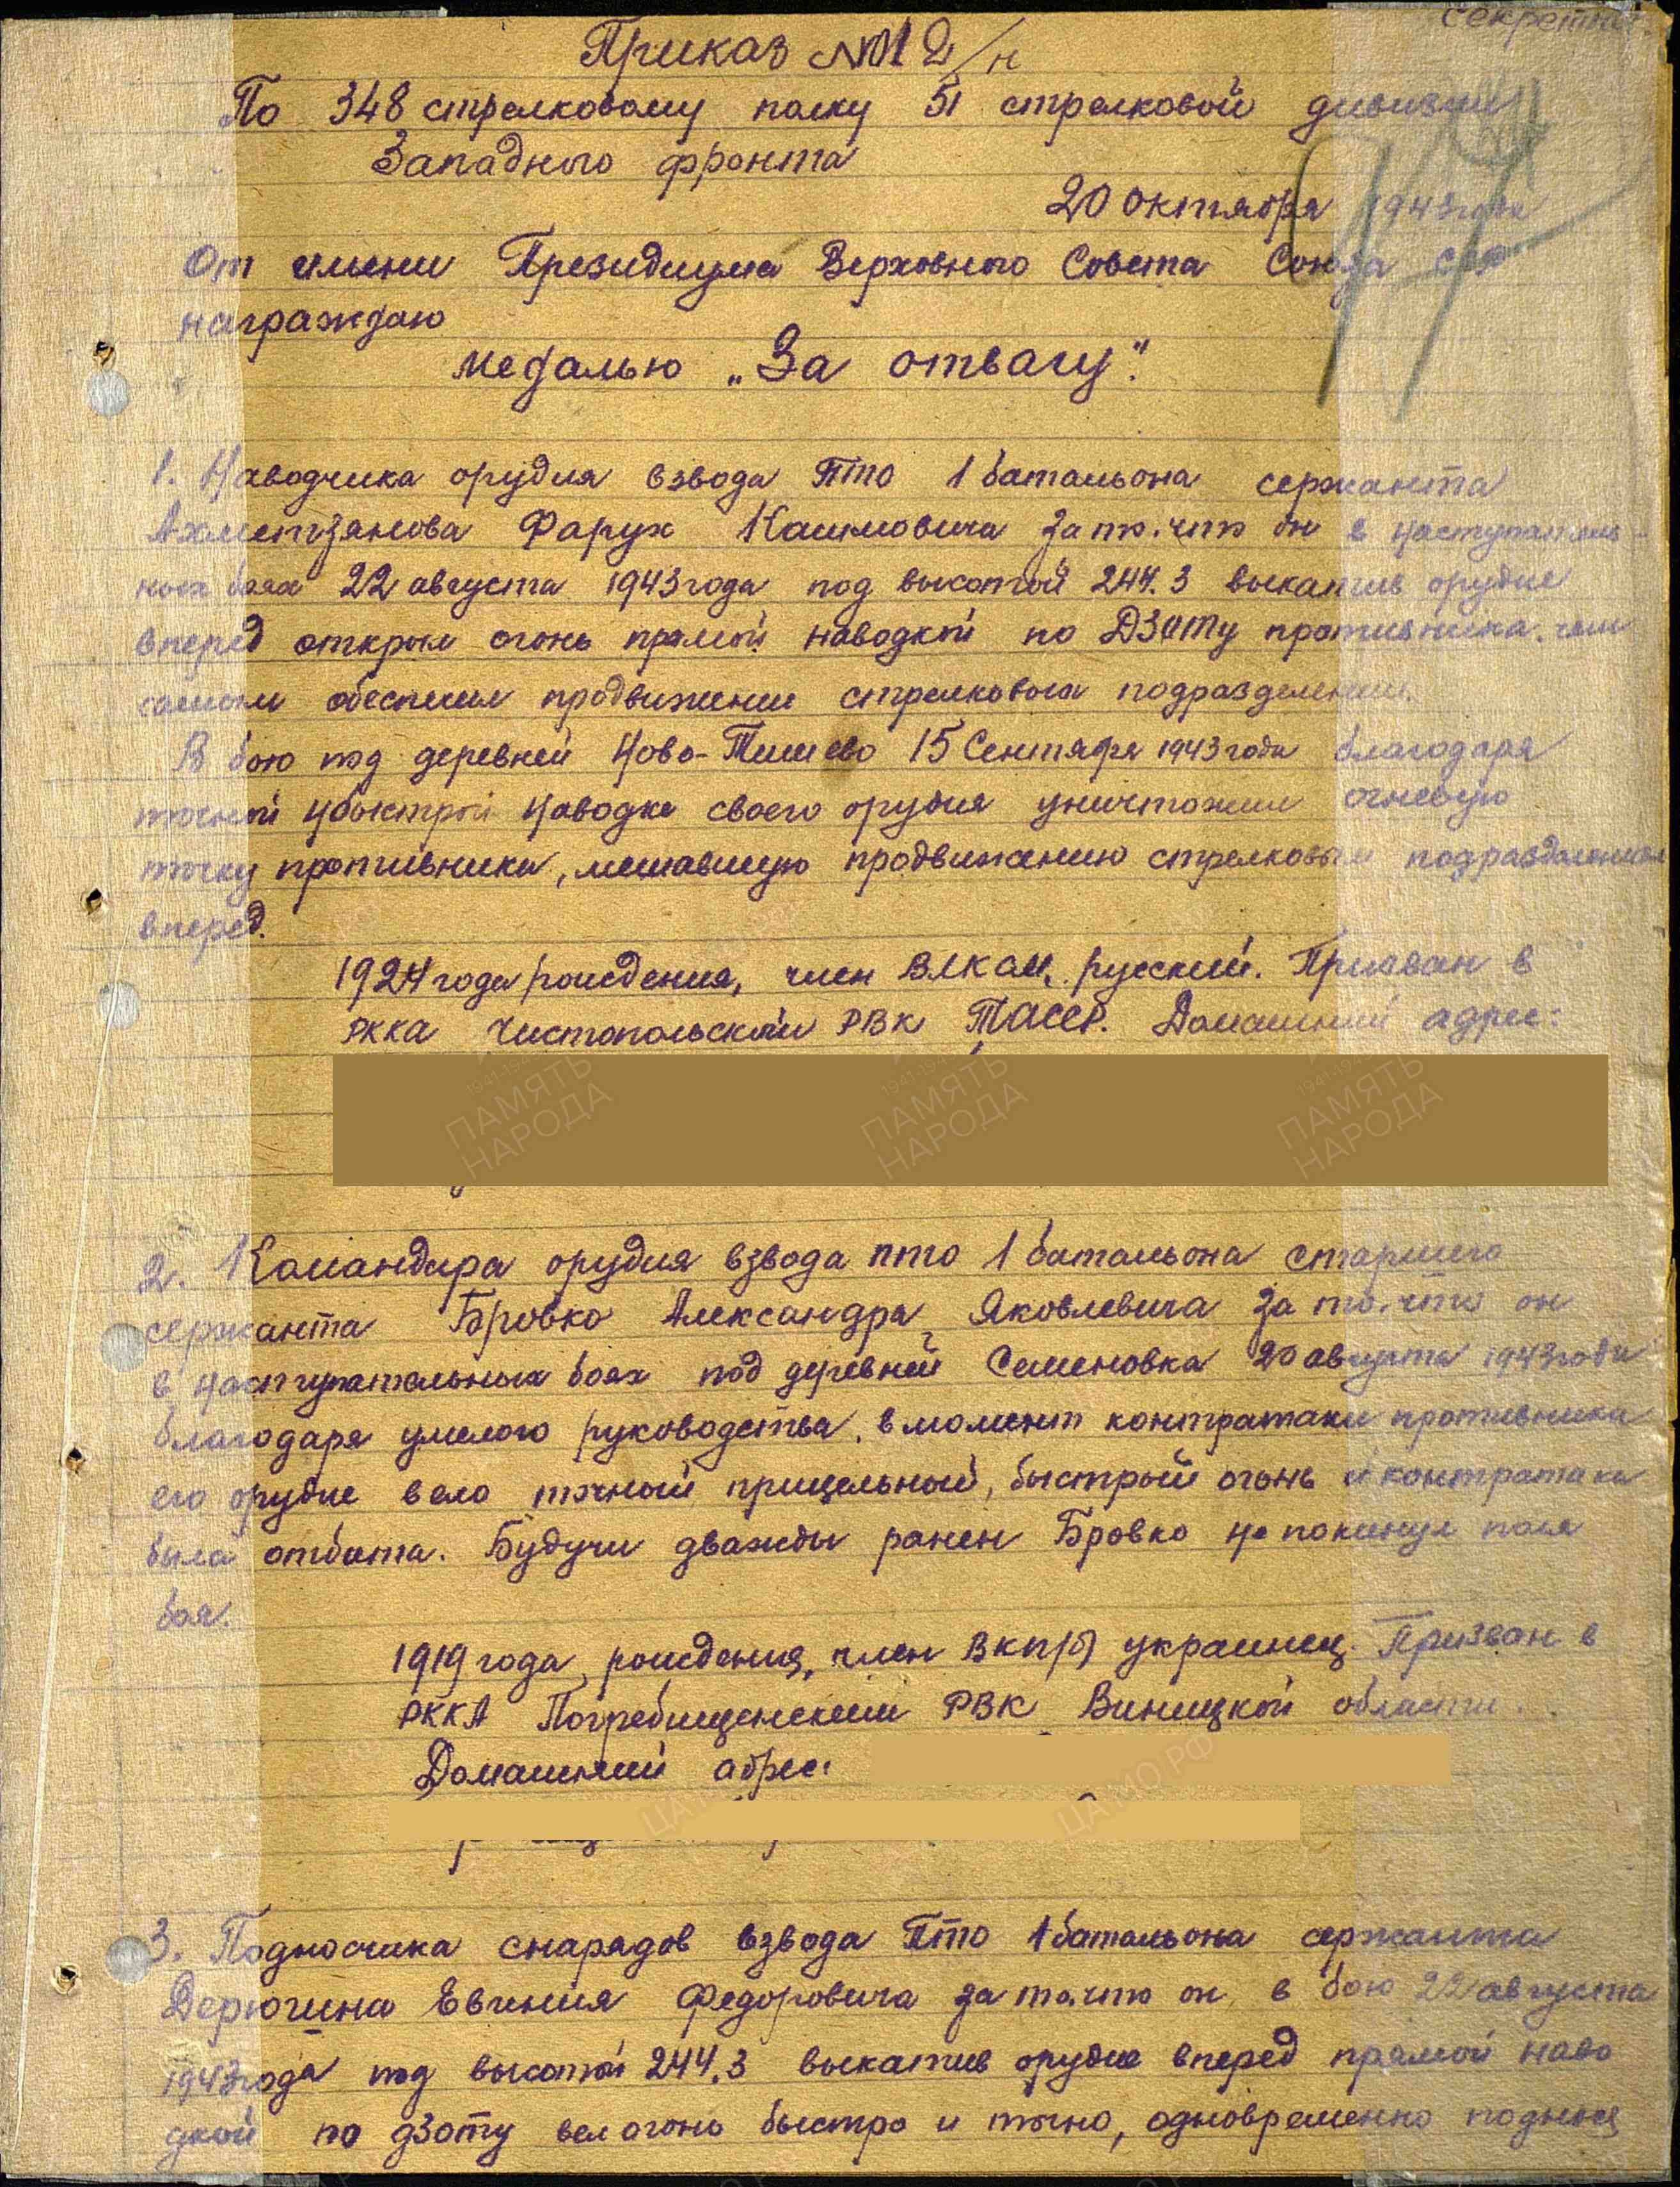 секретно
Приказ №12/н
По 348 стрелковому полку 51 стрелковой дивизии
Западного фронта
20 октября 1943 года
От имени Президиума Верховного Совета Союза ССР
награждаю
медалью „За отвагу".
1. Наводчика орудия взвода ПТО 1 батальона сержанта
Ахметзянова Фарух Касимовича за то, что он в наступатель-
ных боях 22 августа 1943 года под высотой 244.3 выкатив орудие
вперед открыл огонь прямой наводкой по ДЗОТу противника, чем
самым обеспечил продвижение стрелковых подразделений.
В бою под деревней Ново-Тишево 15 Сентября 1943 года благодаря
точной и быстрой наводке своего орудия уничтожил огневую
точку противника, мешавшую продвижению стрелковым подразделениям
вперед.
1924 года рождения, член ВЛКСМ, русский. Призван в
РККА Чистопольским РВК ТАССР. Домашний адрес:
1941-19
ПАМЯТЬ
НАРОДА
1941-19
ПАМЯТЬ
НАРОДА
1941-19
ПАМЯТЬ
НАРОДА
2. Командира орудия взвода ПТО 1 батальона старшего
сержанта Бровко Александра Яковлевича за то, что он
в наступательных боях под деревней Семеновка 20 августа 1943 года
благодаря умелого руководства, в момент контратаки противника
его орудие вело точный прицельный, быстрый огонь и контратака
была отбита. Будучи дважды ранен Бровко не покинул поля
боя.
1919 года рождения, член ВКП(б) украинец. Призван в
РККА Погребищенским РВК Виницкой области.
Домашний адрес:
ЦАМО РФ
ЦАМО РФ
3. Подносчика снарядов взвода ПТО 1 батальона сержанта
Дерюгина Евгения Федоровича за то, что он в бою 22 августа
1943 года под высотой 244.3 выкатив орудие вперед прямой наво
дкой по дзоту вел огонь быстро и точно, одновременно поднося